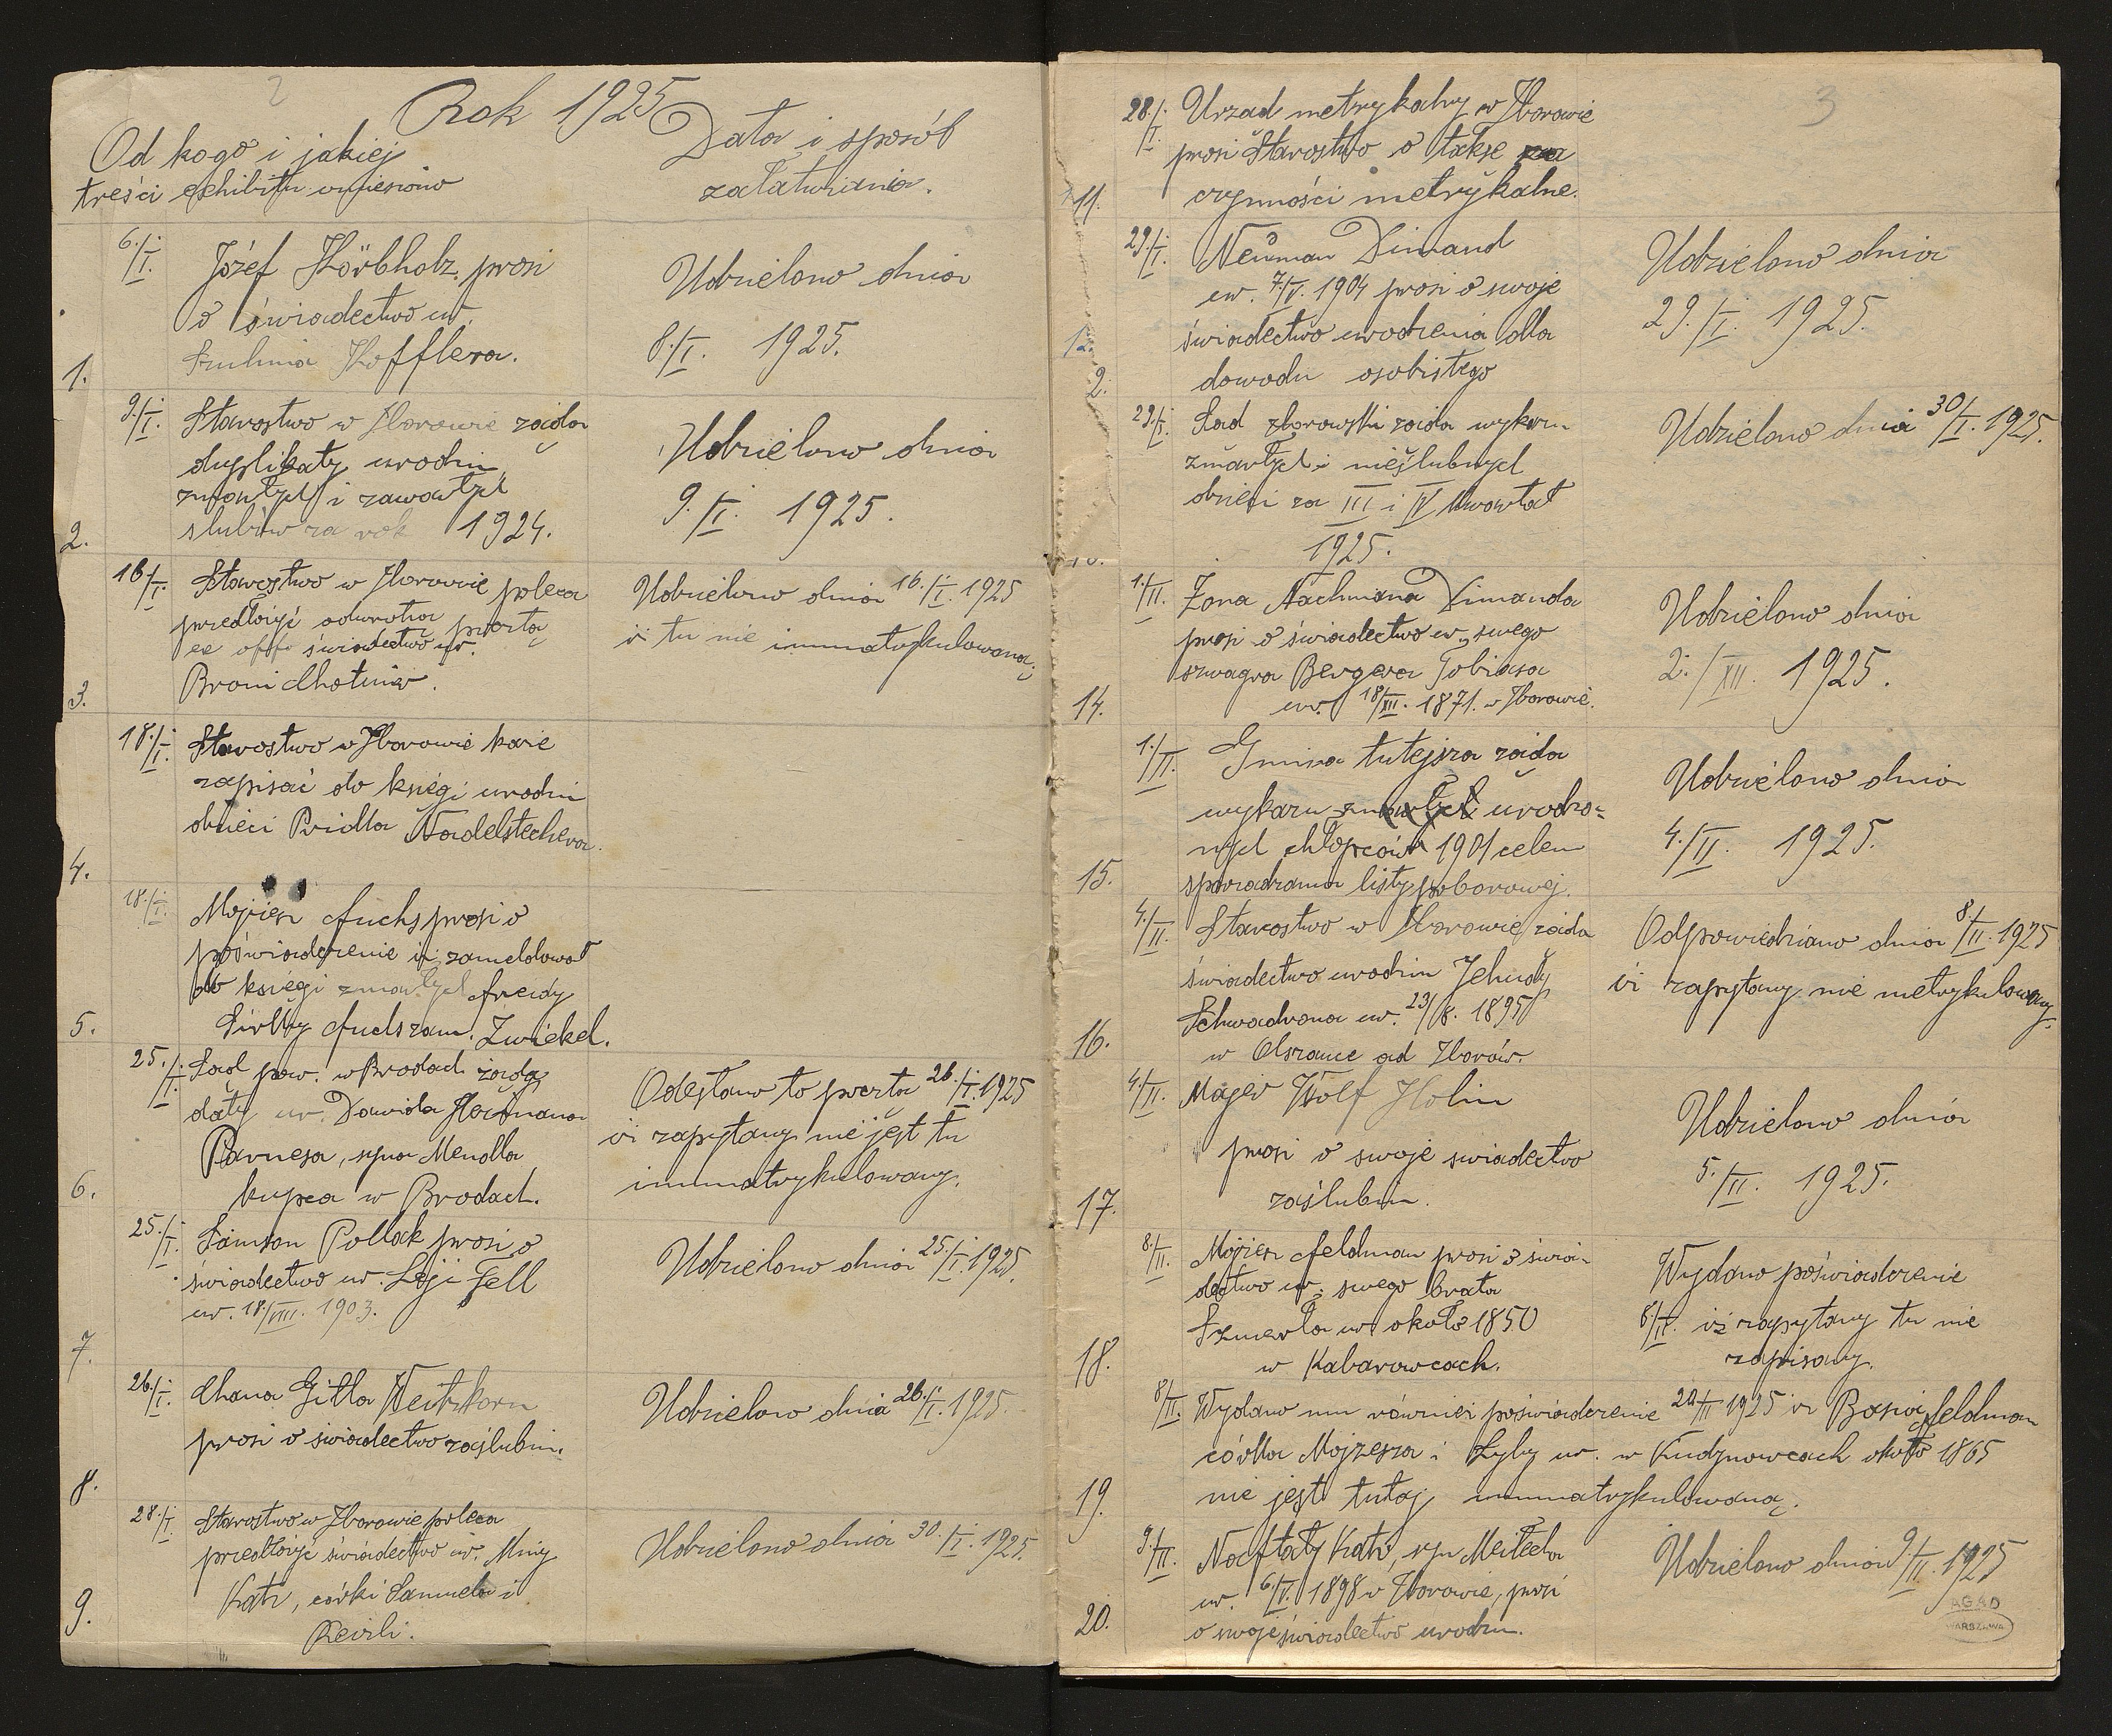 2
Rok 1925
Od kogo i jakiej
treści exhibitu wniesiono
Data i sposób
załatwiania.
6./I.
Józef Körbholz prosi
o świadectwo ur.
Hofflera.
1.
Udzielono dnia
8./I. 1925.
9./I.
Starostwo w Zborowie żąda
duplikaty urodzin
zmarłych i zawartych
ślubów za rok 1924.
2.
Udzielono dnia
9./I. 1925.
16/I.
Starostwo w Zborowie poleca
przedłożyć odwrotną pocztą
ex offo świadectwo ur.
Broni
3.
Udzielono dnia 16./I. 1925
iż tu nie immatrykulowaną.
18./I.
Starostwo w Zborowie każe
zapisać do księgi urodzin
dzieci Pridla Nadelstechera.
4.
18./I.
Mojżesz Fuchs prosi o
poświadczenie iż zameldował
do księgi zmarłych Freidy
Fuchs zam. Zwickel.
5.
25./I.
Sąd pow. w Brodach żąda
daty ur. Dawida Hermana
Parnesa, syna Mendla
kupca w Brodach.
6.
Odesłano to pocztą 26./I. 1925
iż zapytany nie jest tu
immatrykulowany.
25./I.
Samson Pollak prosi o
świadectwo ur. Leji Fell
ur. 18./VIII. 1903.
7.
Udzielono dnia 25./I. 1925.
26./I.
Chana Gitla Weitzkorn
prosi o świadectwo zaślubin.
8.
Udzielono dnia 26./I. 1925.
28./I.
Starostwo w Zborowie poleca
przedłożyć świadectwo ur. Miny
Katz, córki Samuela i
Reizli.
9.
Udzielono dnia 30./I. 1925.
3
28./I.
Urząd metrykalny w Zborowie
prosi Starostwo o taksę za
czynności metrykalne.
11.
29./I.
Neuman Dimand
ur. 7./V. 1904 prosi o swoje
świadectwo urodzenia dla
dowodu osobistego
12.
2.
Udzielono dnia
29./I. 1925.
29./I.
Sąd zborowski żąda wykazu
zmarłych i nieślubnych
dzieci za III i IV kwartał
1925.
Udzielono dnia 30/I. 1925.
1./II.
Żona Nachmana Dimanda
prosi o świadectwo ur. swego
szwagra Bergera Tobiasa
ur. 18/XII. 1871. w Zborowie.
14.
Udzielono dnia
2./XII. 1925.
1./II.
Gmina tutejsza żąda
wykazu zmarłych urodzo=
nych chłopców 1901 celem
sporządzania listy poborowej.
15.
Udzielono dnia
4./II. 1925.
4./II.
Starostwo w Zborowie żąda
świadectwo urodzin Jehudy
Schwadrona ur. 23/8. 1895
w Olszance ad Zborów.
16.
Odpowiedziano dnia 8./II. 1925
iż zapytany nie metrykulowany.
4./II.
Majer Wolf Holin
prosi o swoje swiadectwo
zaślubin.
17.
Udzielono dnia
5./II. 1925.
8./II.
Mojżesz Feldman prosi o świa-
dectwo ur. swego brata
Szmerla ur. około 1850
w Kabarowcach.
18.
Wydano poświadczenie
8/II. iż zapytany tu nie
zapisany.
8/II.
Wydano mu również poświadczenie 24/II 1925 iż Basia Feldman
córka Mojżesza i Zyły ur. w Kudynowcach około 1865
nie jest tutaj immatrykulowaną.
19.
9./II.
Naftały Katz, syn Meilecha
ur. 6./V. 1898 w Zborowie, prosi
o swoje świadectwo urodzin.
20.
Udzielono dnia 9/II. 1925
AGAD
WARSZAWA